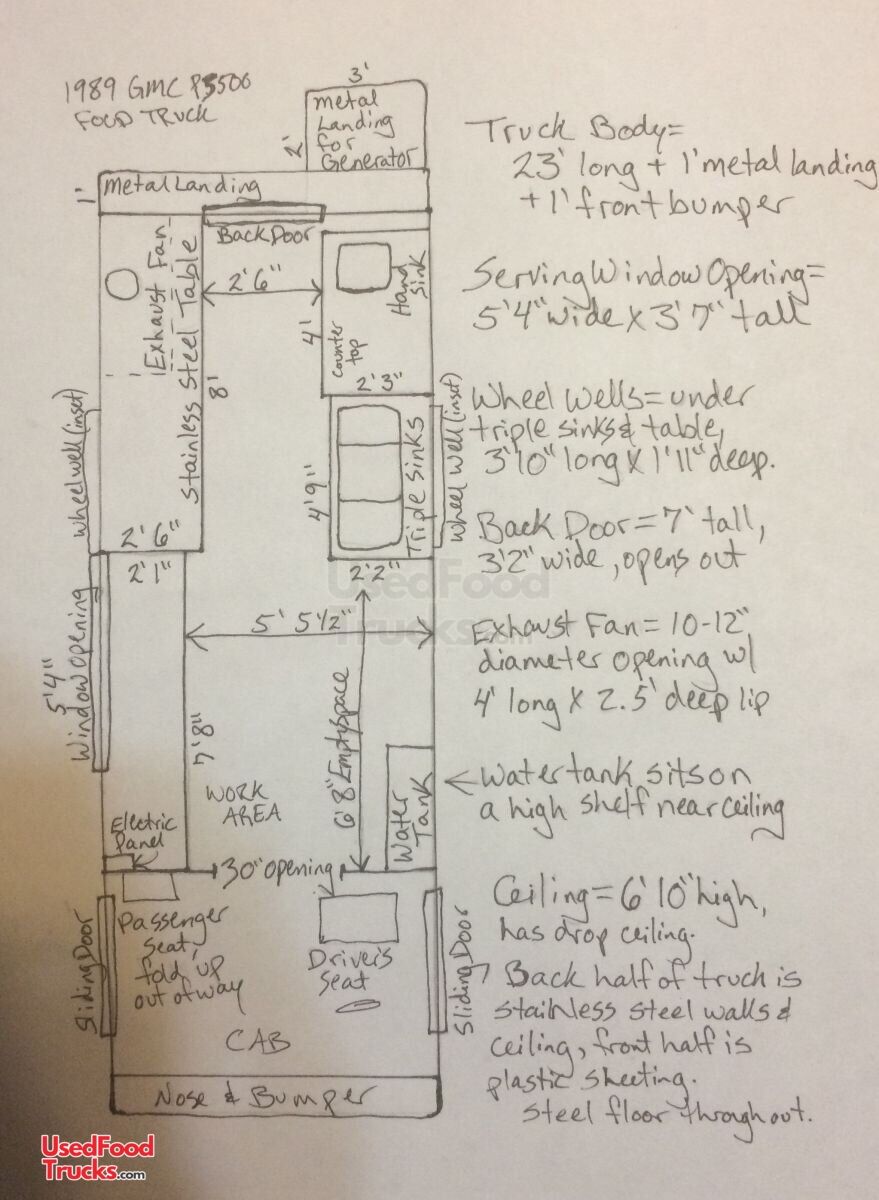 1989 GMC P3500
FOOD TRUCK
3'
2'
Metal
Landing
for
Generator
1'
Metal Landing
Back Door
Exhaust Fan
Stainless Steel Table
8'
2'6"
4'
Hand
Sink
Counter
top
2'3"
Wheel well (inset)
4'9"
Triple Sinks
Wheel Well (inset)
2'6"
2'1"
2'2"
5' 5 1/2"
5'4"
Window Opening
7'8"
6'8" Empty space
WORK
AREA
Water
Tank
Electric
Panel
30" opening
Passenger
Seat,
fold up
out of way
Driver's
Seat
Sliding Door
Sliding Door
CAB
Nose & Bumper
Truck Body=
23' long + 1' metal landing
+ 1' front bumper
Serving Window Opening=
5'4" wide X 3'7" tall
Wheel Wells= under
triple sinks & table,
3'10" long X 1'11" deep.
Back Door= 7' tall,
3'2" wide, opens out
Exhaust Fan= 10-12"
diameter opening w/
4' long X 2.5' deep lip
Water tank sits on
a high shelf near ceiling
Ceiling= 6'10" high,
has drop ceiling.
Back half of truck is
stainless steel walls &
ceiling, front half is
plastic sheeting.
Steel floor throughout.
UsedFood
Trucks.com
UsedFood
Trucks.com